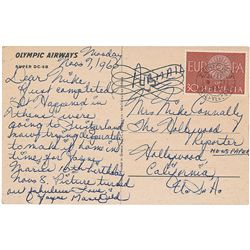 OLYMPIC AIRWAYS
SUPER DC-6B
Monday
Nov 7, 1960
Dear Mike
Just completed
It Happened in
Athens were
going to Switzerland
many trying desperately
to make it home in
time for Jaynes
Maries 10th birthday
Nov 8. Picture turned
out fabulous. Love
Jayne Mansfield
AIRMAIL
EUROPA
30 HELVETIA
Mrs Mike Connolly
The Hollywood
Reporter
NEWSPAPER
Hollywood
California
U.S.A.